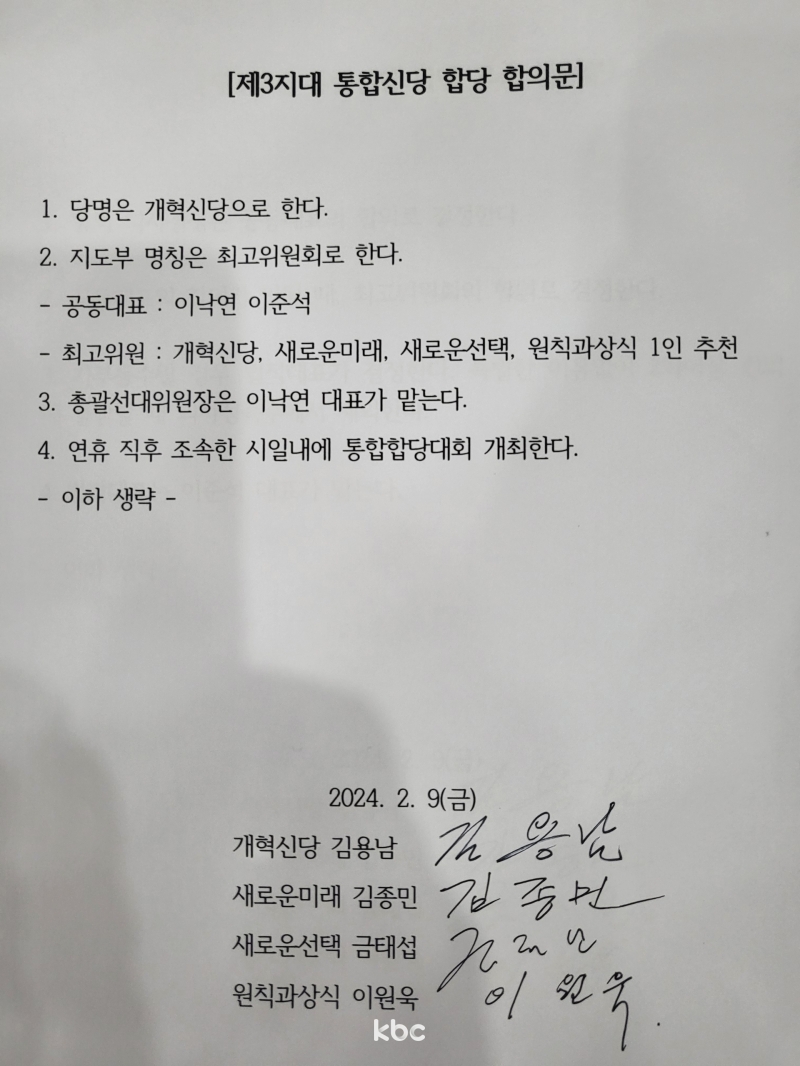 [제3지대 통합신당 합당 합의문]
1. 당명은 개혁신당으로 한다.
2. 지도부 명칭은 최고위원회로 한다.
- 공동대표 : 이낙연 이준석
- 최고위원 : 개혁신당, 새로운미래, 새로운선택, 원칙과상식 1인 추천
3. 총괄선대위원장은 이낙연 대표가 맡는다.
4. 연휴 직후 조속한 시일내에 통합합당대회 개최한다.
- 이하 생략 -
2024. 2. 9(금)
개혁신당 김용남 김용남
새로운미래 김종민 김종민
새로운선택 금태섭
원칙과상식 이원욱 이원욱
kbc